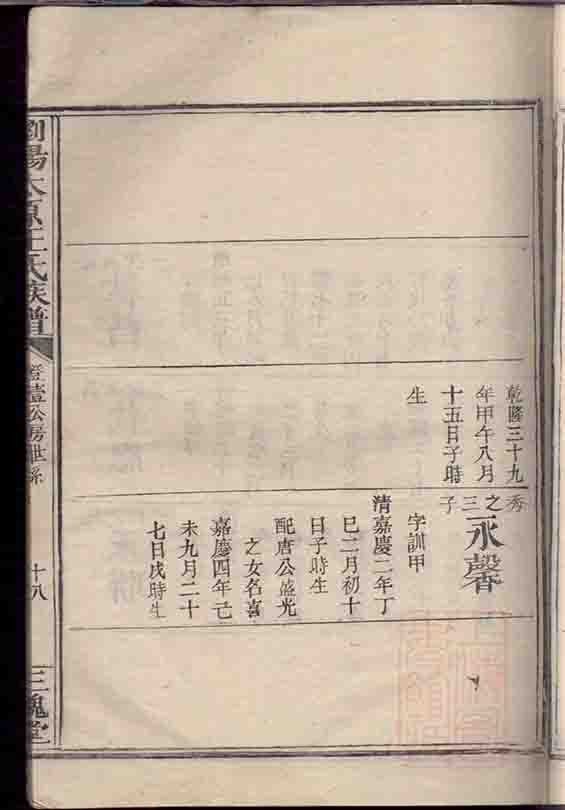 乾隆三十九
年甲午八月
十五日子時
生
秀
之三子
永馨
字訓甲
清嘉慶二年丁
巳二月初十
日子時生
配唐公盛光
之女名喜
嘉慶四年己
未九月二十
七日戌時生
瀏陽太原王氏族譜
公房世系
十八
三槐堂